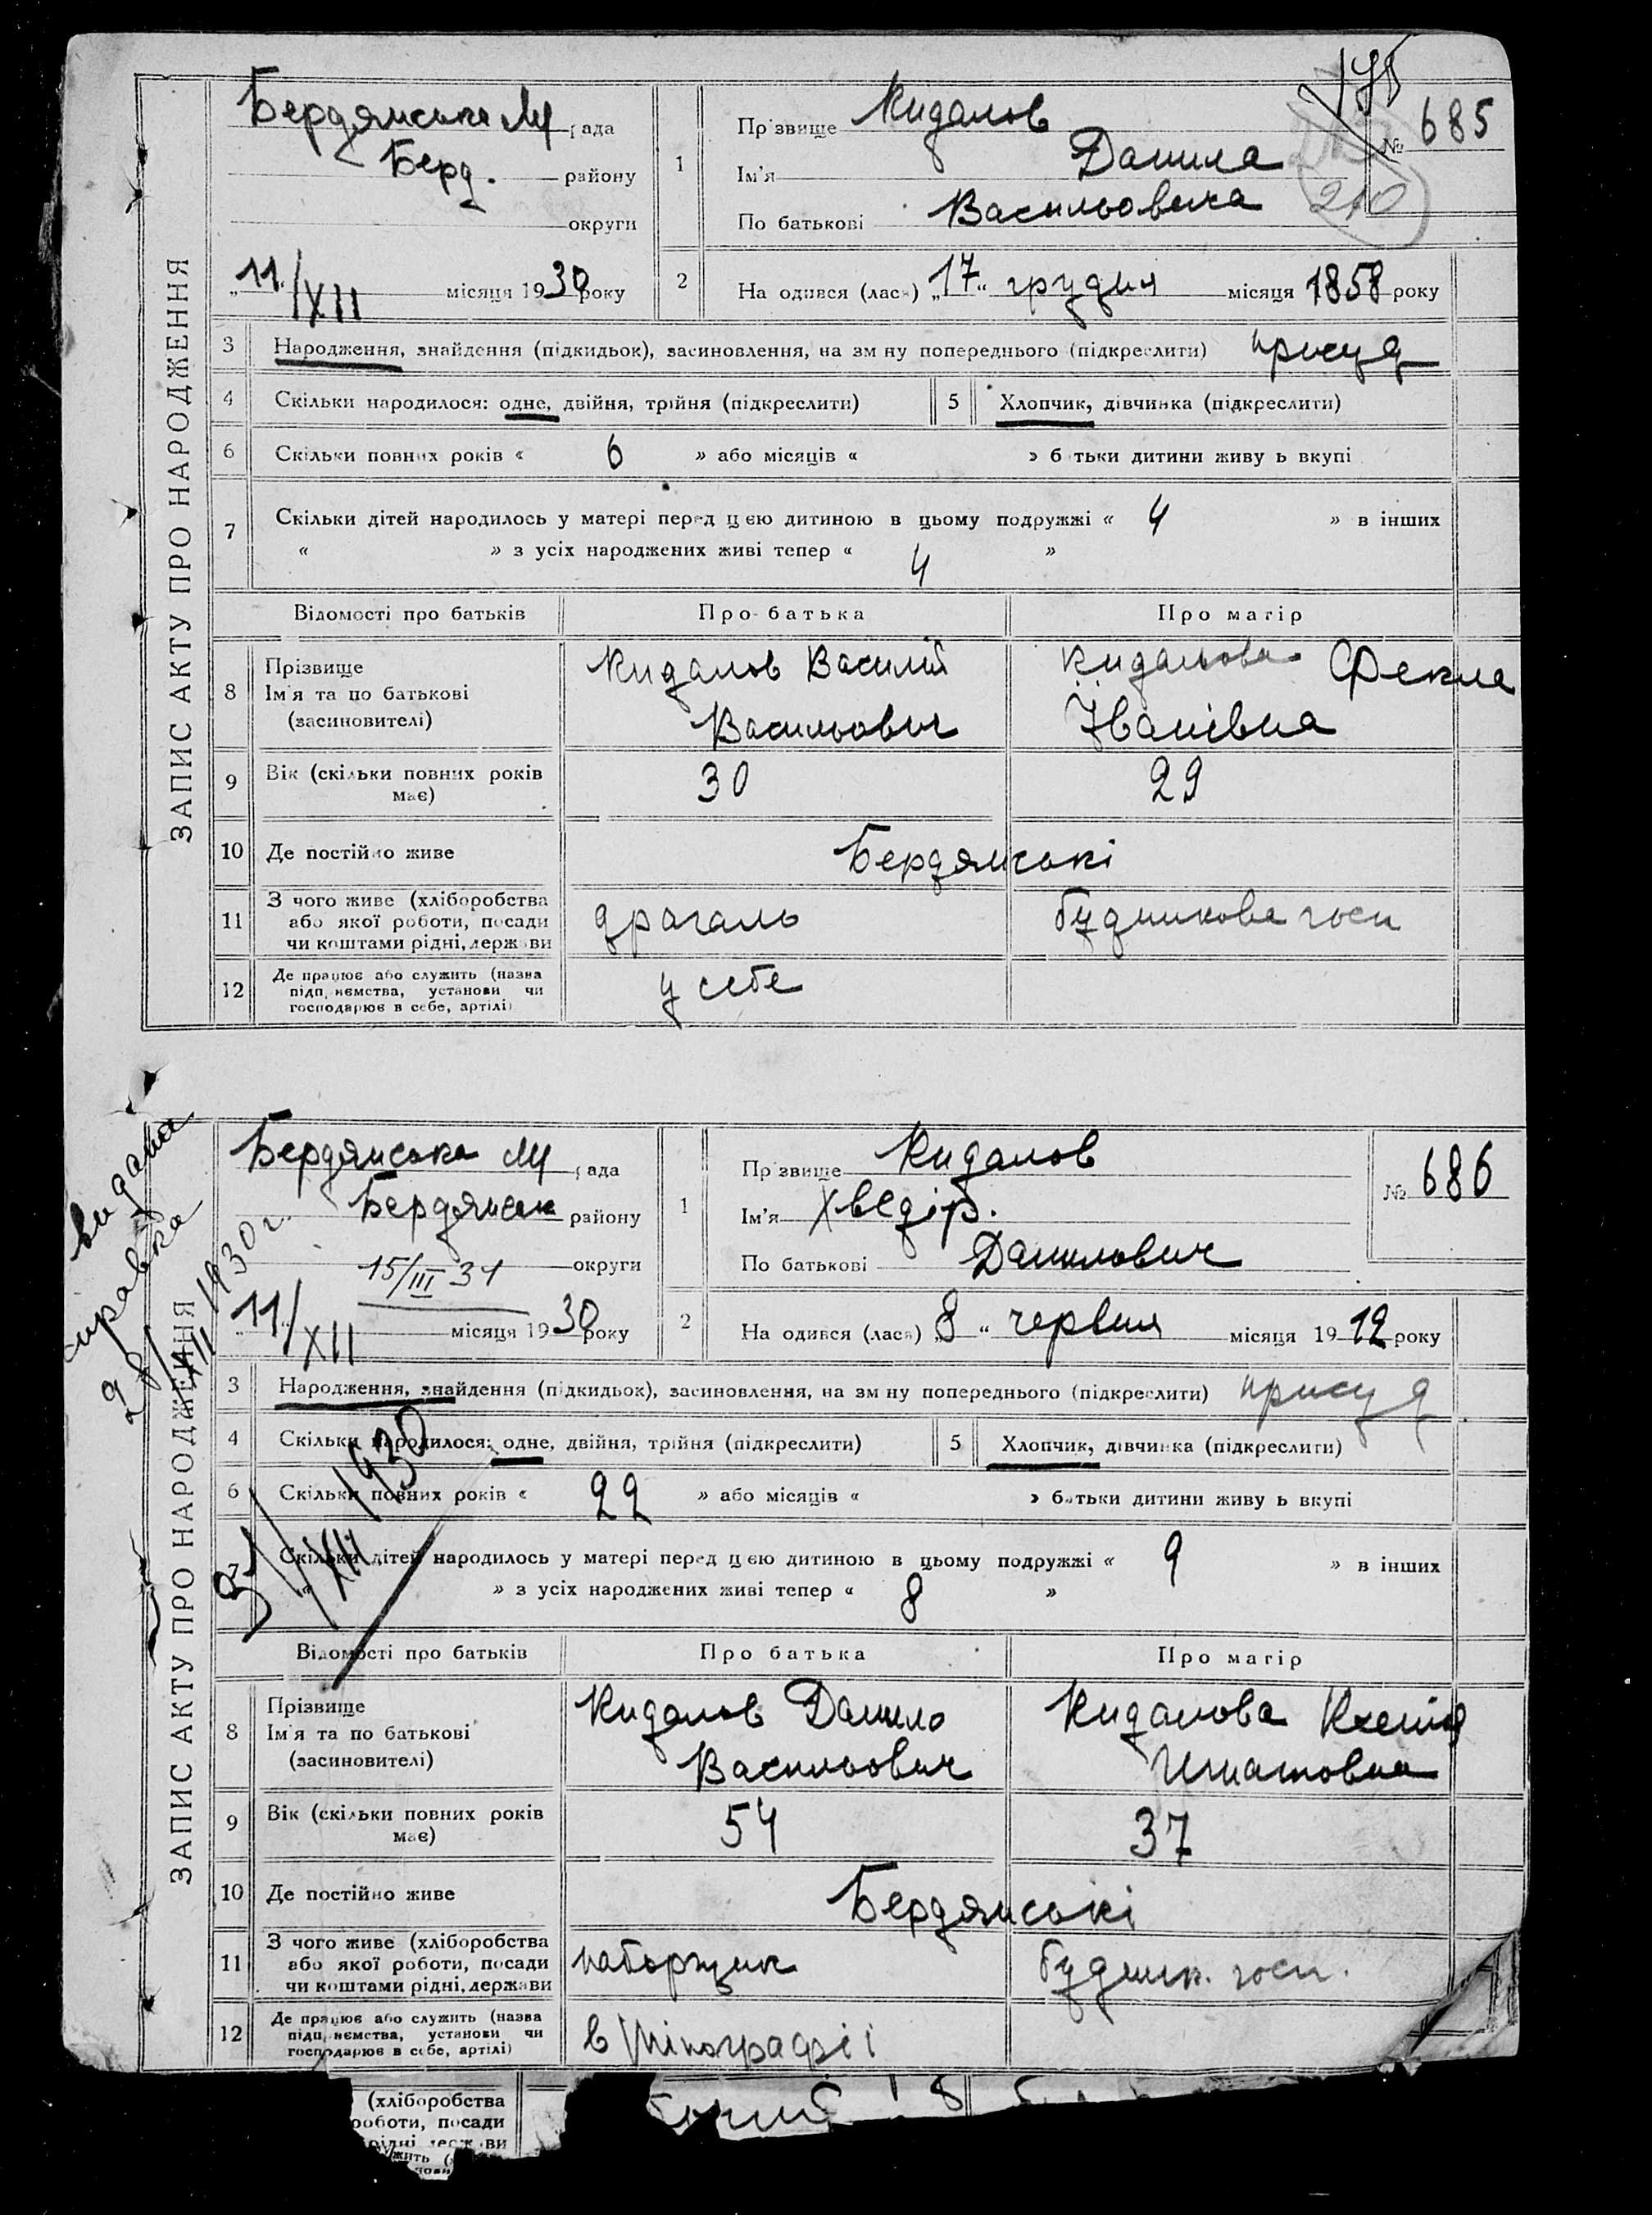 ЗАПИС АКТУ ПРО НАРОДЖЕННЯ
Бердянська М рада
Берд. району
округи
„11“/XII місяця 1930 року
1
Прізвище Кидалов
Ім'я Данила
По батькові Васильовича
№ 685
210
2
Народився (лася) „17“ грудня місяця 1858 року
3 Народження, знайдення (підкидьок), засиновлення, на зміну попереднього (підкреслити) присуд
4 Скільки народилося: одне, двійня, трійня (підкреслити) 5 Хлопчик, дівчинка (підкреслити)
6 Скільки повних років « 6 » або місяців « » батьки дитини живуть вкупі
7 Скільки дітей народилось у матері перед цею дитиною в цьому подружжі « 4 » в інших
« » з усіх народжених живі тепер « 4 »
Відомості про батьків Про батька Про матір
8 Прізвище Ім'я та по батькові (засиновителі) Кидалов Василій Васильович Кидальова Фекла Іванівна
9 Вік (скільки повних років має) 30 29
10 Де постійно живе Бердянські
11 З чого живе (хліборобства або якої роботи, посади чи коштами рідні, держави драгаль будинкова госп
12 Де працює або служить (назва підприємства, установи чи господарює в себе, артілі) у себе
видана справка
28/XII 1930 г.
ЗАПИС АКТУ ПРО НАРОДЖЕННЯ
Бердянська М рада
Бердянськ району
15/III 31 округи
„11“/XII місяця 1930 року
1
Прізвище Кидалов
Ім'я Хведір.
По батькові Данилович
№ 686
2
Народився (лася) „8“ червня місяця 1912 року
3 Народження, знайдення (підкидьок), засиновлення, на зміну попереднього (підкреслити) присуд
4 Скільки народилося: одне, двійня, трійня (підкреслити) 5 Хлопчик, дівчинка (підкреслити)
6 Скільки повних років « 22 » або місяців « » батьки дитини живуть вкупі
7 Скільки дітей народилось у матері перед цею дитиною в цьому подружжі « 9 » в інших
» з усіх народжених живі тепер « 8 »
31/XII 1930
Відомості про батьків Про батька Про матір
8 Прізвище Ім'я та по батькові (засиновителі) Кидалов Данило Васильович Кидалова Ксенія Игнатовна
9 Вік (скільки повних років має) 54 37
10 Де постійно живе Бердянські
11 З чого живе (хліборобства або якої роботи, посади чи коштами рідні, держави наборщик будинк. госп.
12 Де працює або служить (назва підприємства, установи чи господарює в себе, артілі) в тіпографіі
(хліборобства
роботи, посади
рідні держави